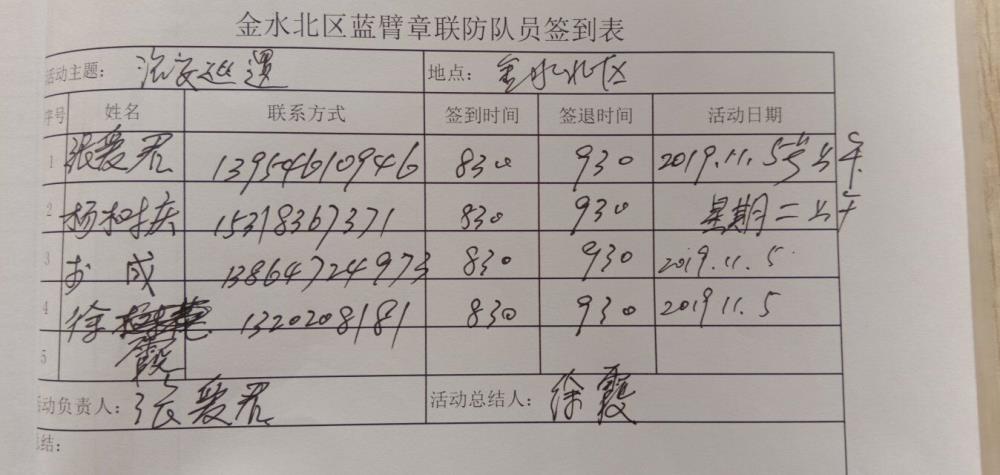 金水北区蓝臂章联防队员签到表
活动主题: 治安巡逻 地点: 金水北区
序号 姓名 联系方式 签到时间 签退时间 活动日期
1 张爱君 139546109446 830 930 2019.11.5号上午
2 杨 15318367371 830 930 星期二上午
3 成 13864724973 830 930 2019.11.5
4 徐霞 1320208181 830 930 2019 11.5
5
活动负责人: 张爱君 活动总结人: 徐霞
总结: